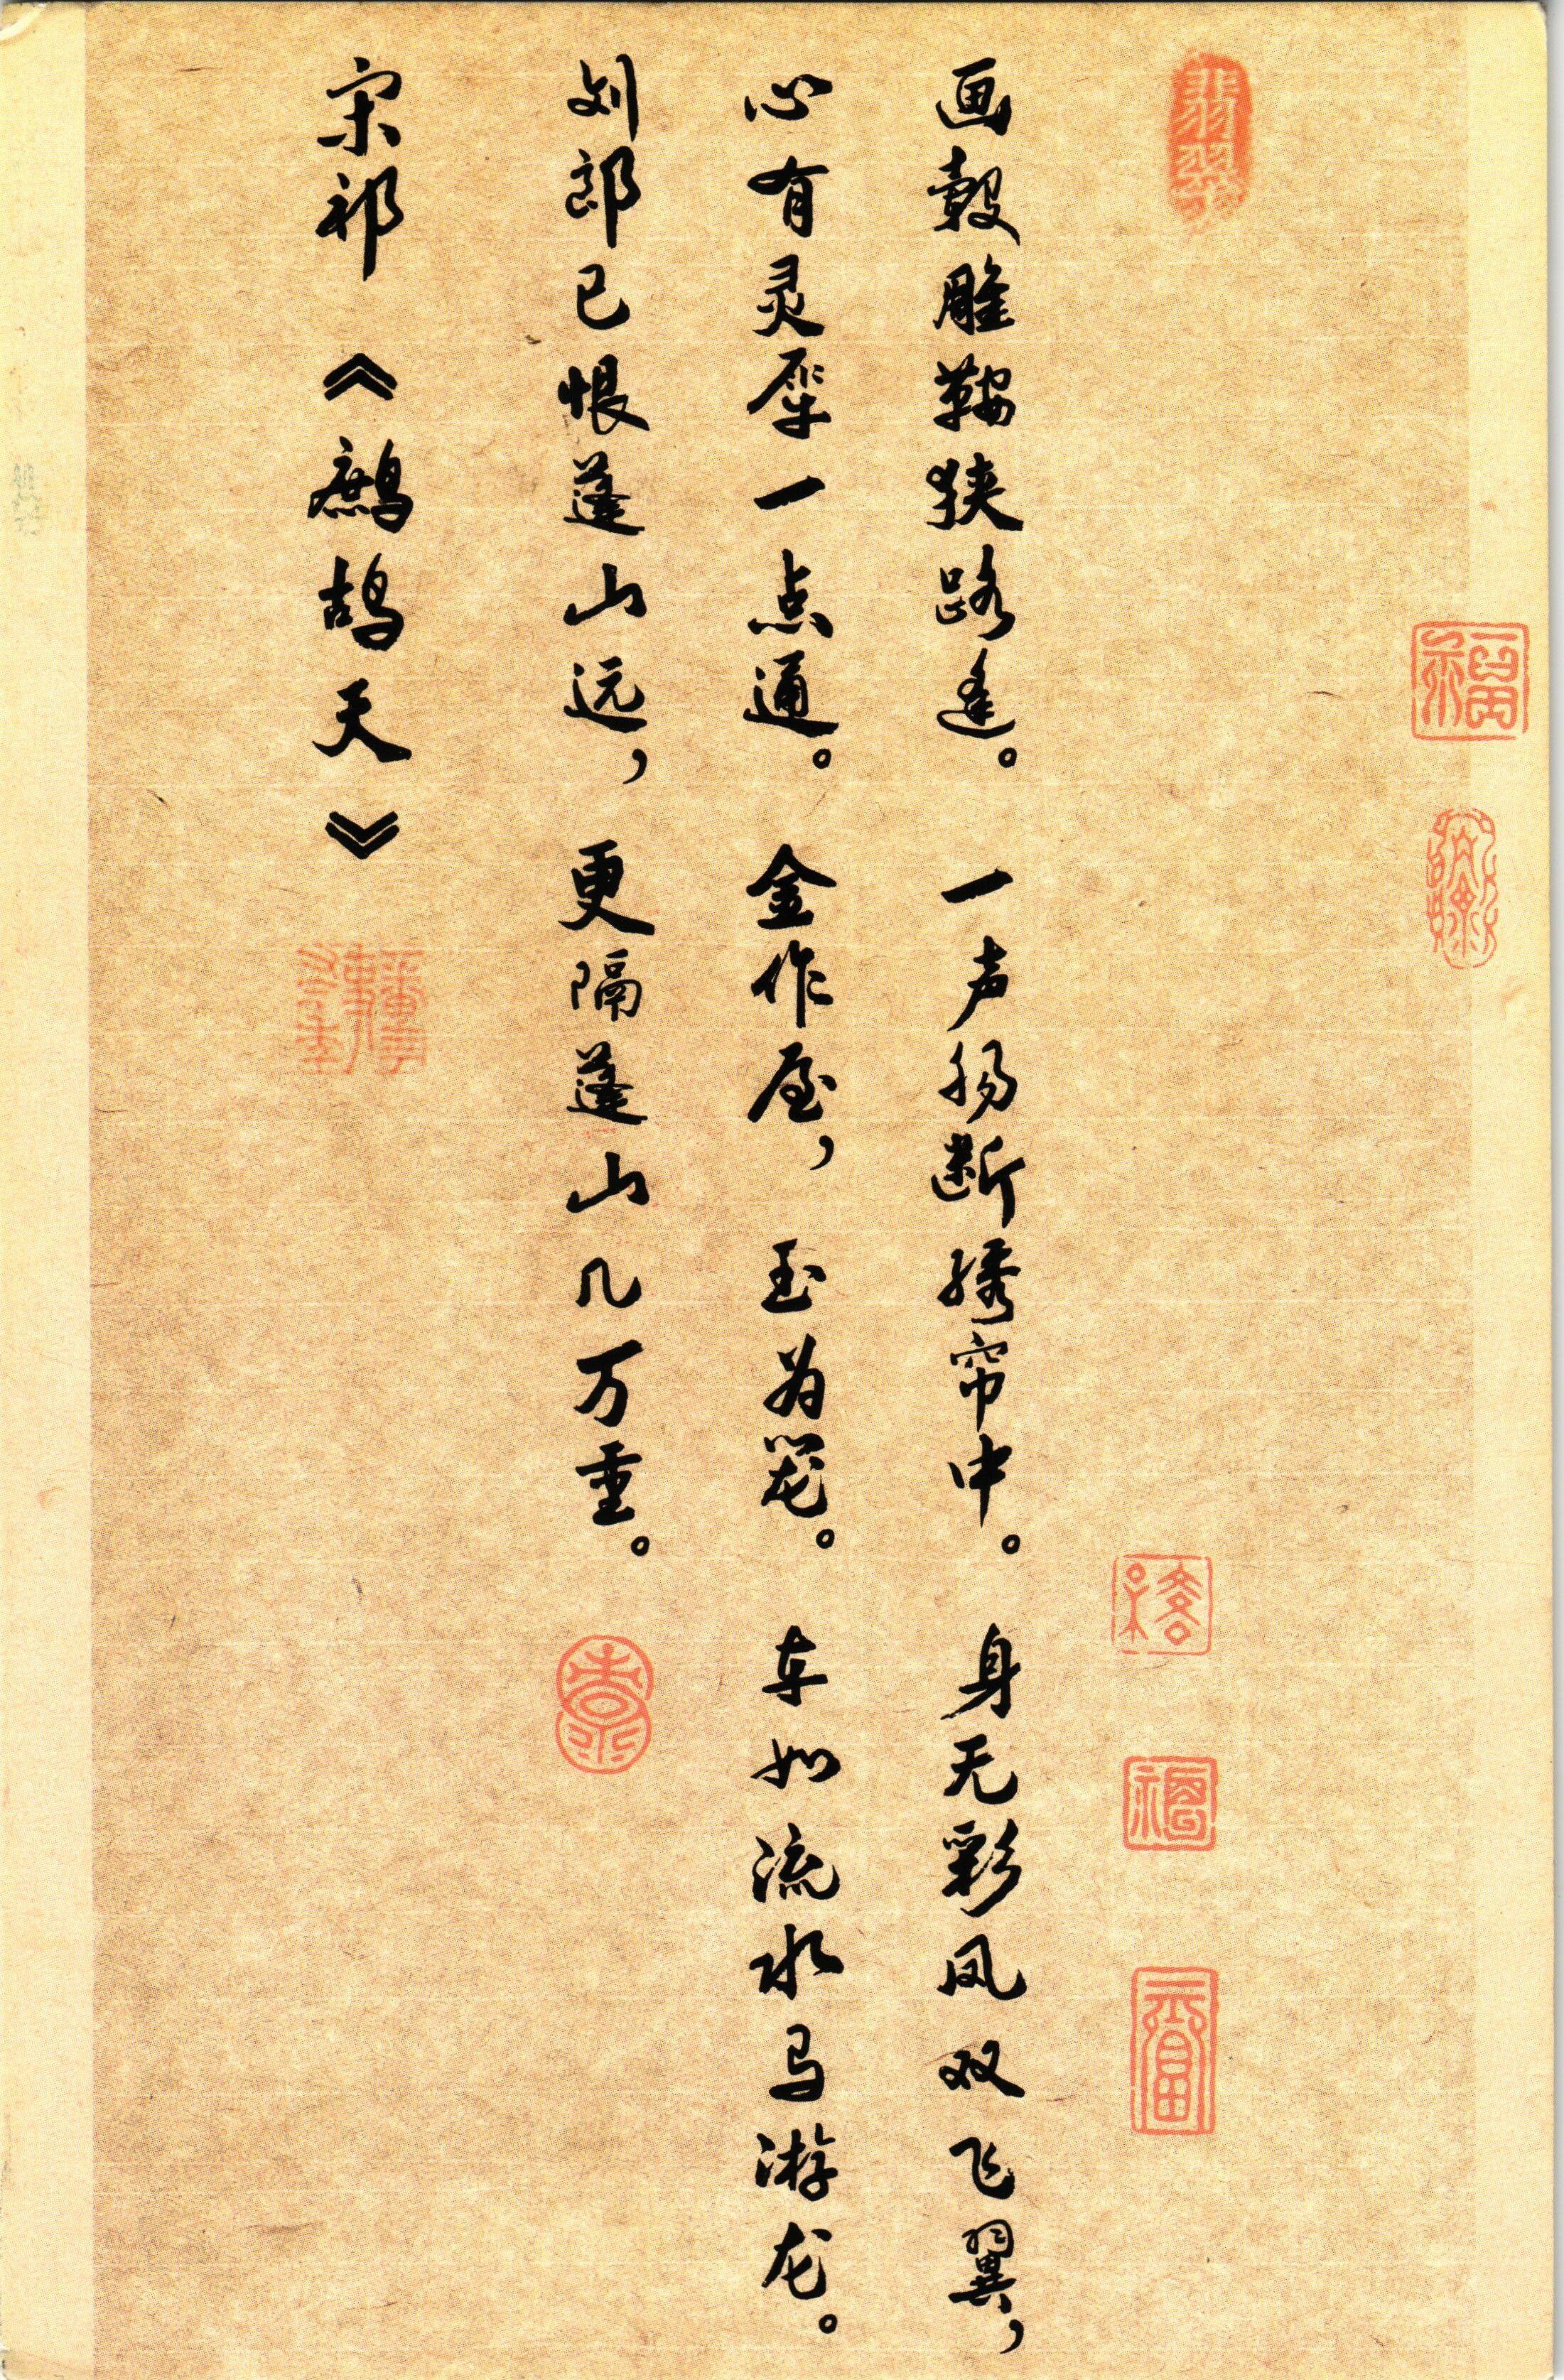 福
翡翠
画毂雕鞍狭路逢。一声肠断绣帘中。身无彩凤双飞翼，
心有灵犀一点通。金作屋，玉为笼。车如流水马游龙。
刘郎已恨蓬山远，更隔蓬山几万重。
宋祁《鹧鸪天》